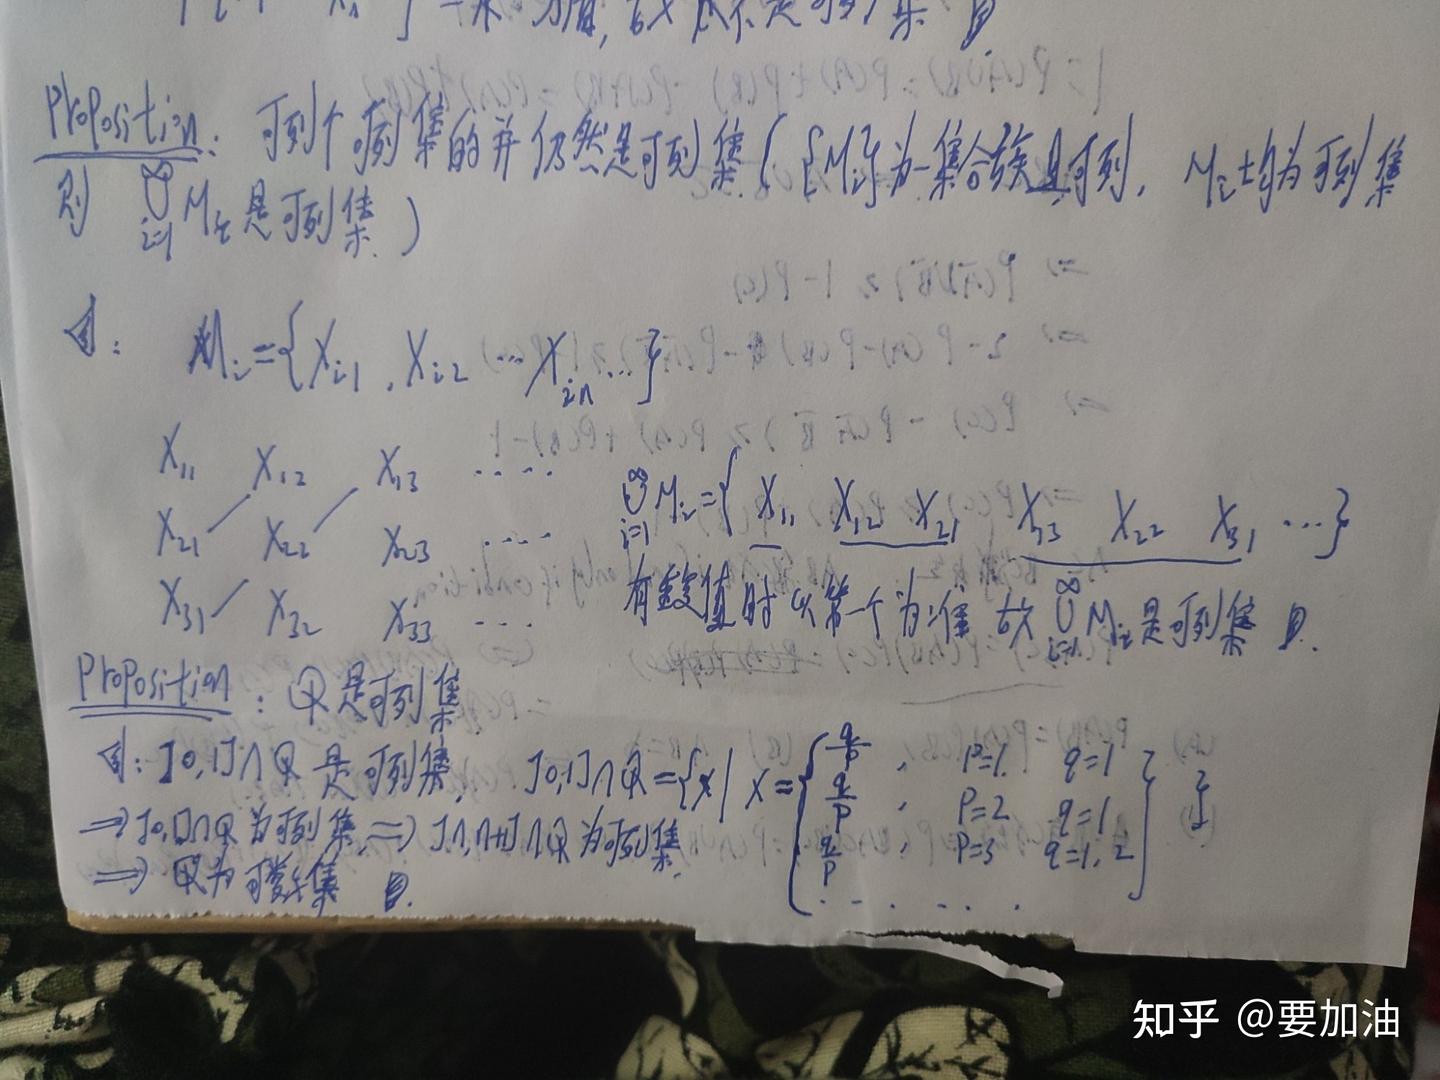 一 矛盾, 故 不是可列集
Proposition: 可列个可列集的并仍然是可列集 ( {Mi}为一集合族且可列, Mi均为可列集
则 ∞∪i=1 Mi 是可列集 )
证: Mi={Xi1, Xi2 ... Xin ...}
X11 X12 X13 .....
X21 X22 X23 .....
X31 X32 X33 ...
∞∪i=1 Mi={ X11 X12 X21 X13 X22 X31 ...}
有重复值时以第一个为准 故 ∞∪i=1 Mi 是可列集
Proposition: Q是可列集
证: ]0,1]∩Q 是可列集, ]0,1]∩Q={x| x={ q/p , P=1, q=1
q/p , P=2 q=1
q/p , P=3 q=1,2
. . . . . . } }
⇒ ]0,1]∩Q 为可列集 ⇒ ]n,n+1]∩Q 为可列集,
⇒ Q为可数集
知乎 @要加油